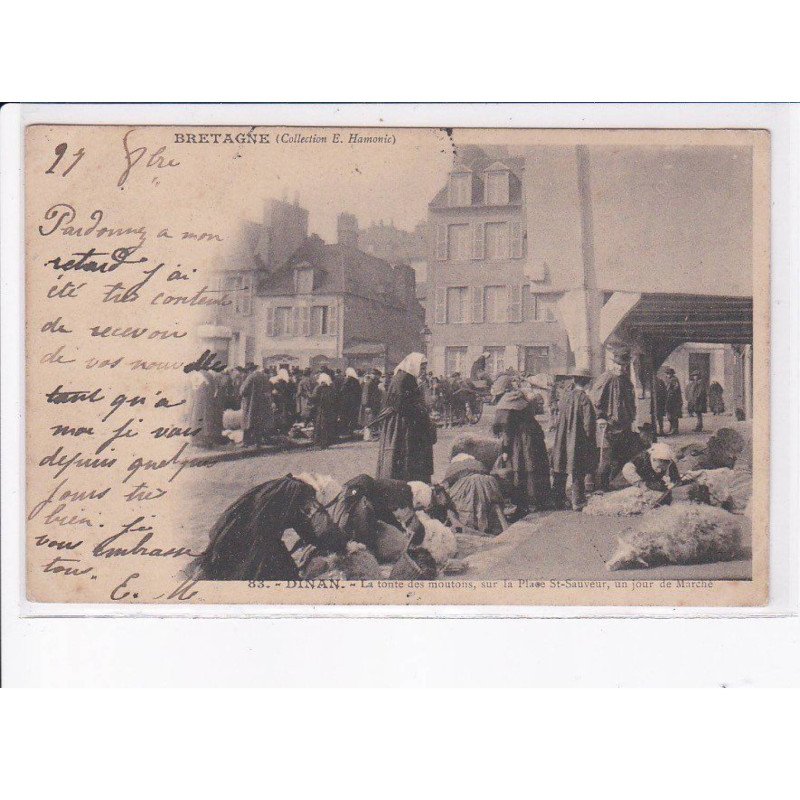 BRETAGNE (Collection E. Hamonic)
27 8bre
Pardonnez a mon
retard j'ai
été très contente
de recevoir
de vos nouvelle
tant qu'a
moi je vais
depuis quelque
jours très
bien. je
vous embrasse
tous
E. M
83. - DINAN. - La tonte des moutons, sur la Place St-Sauveur, un jour de Marché